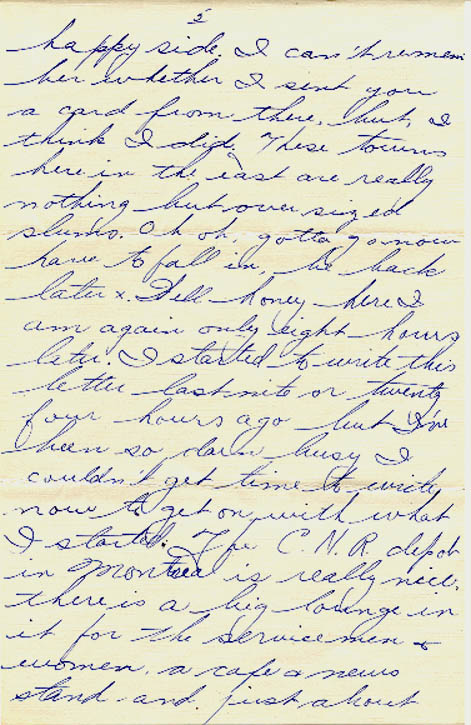 5
happy side. I can't remem
ber whether I sent you
a card from there, but, I
think I did. These towns
here in the east are really
nothing but over sized
slums. Oh oh, gotta go now
have to fall in, be back
later x. Well honey here I
am again only eight hours
later. I started to write this
letter last nite or twenty
four hours ago but I've
been so darn busy I
couldn't get time to write,
now to get on with what
I started. The C.N.R. depot
in Montreal is really nice.
there is a big lounge in
it for the service men &
women, a cafe & news
stand and just about